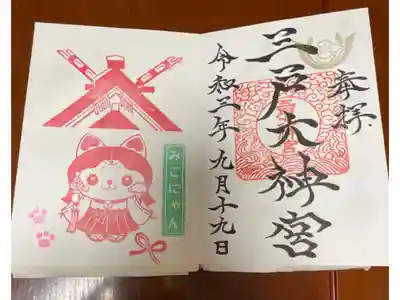 奉拝
三戸大神宮
令和三年九月十九日
みこにゃん